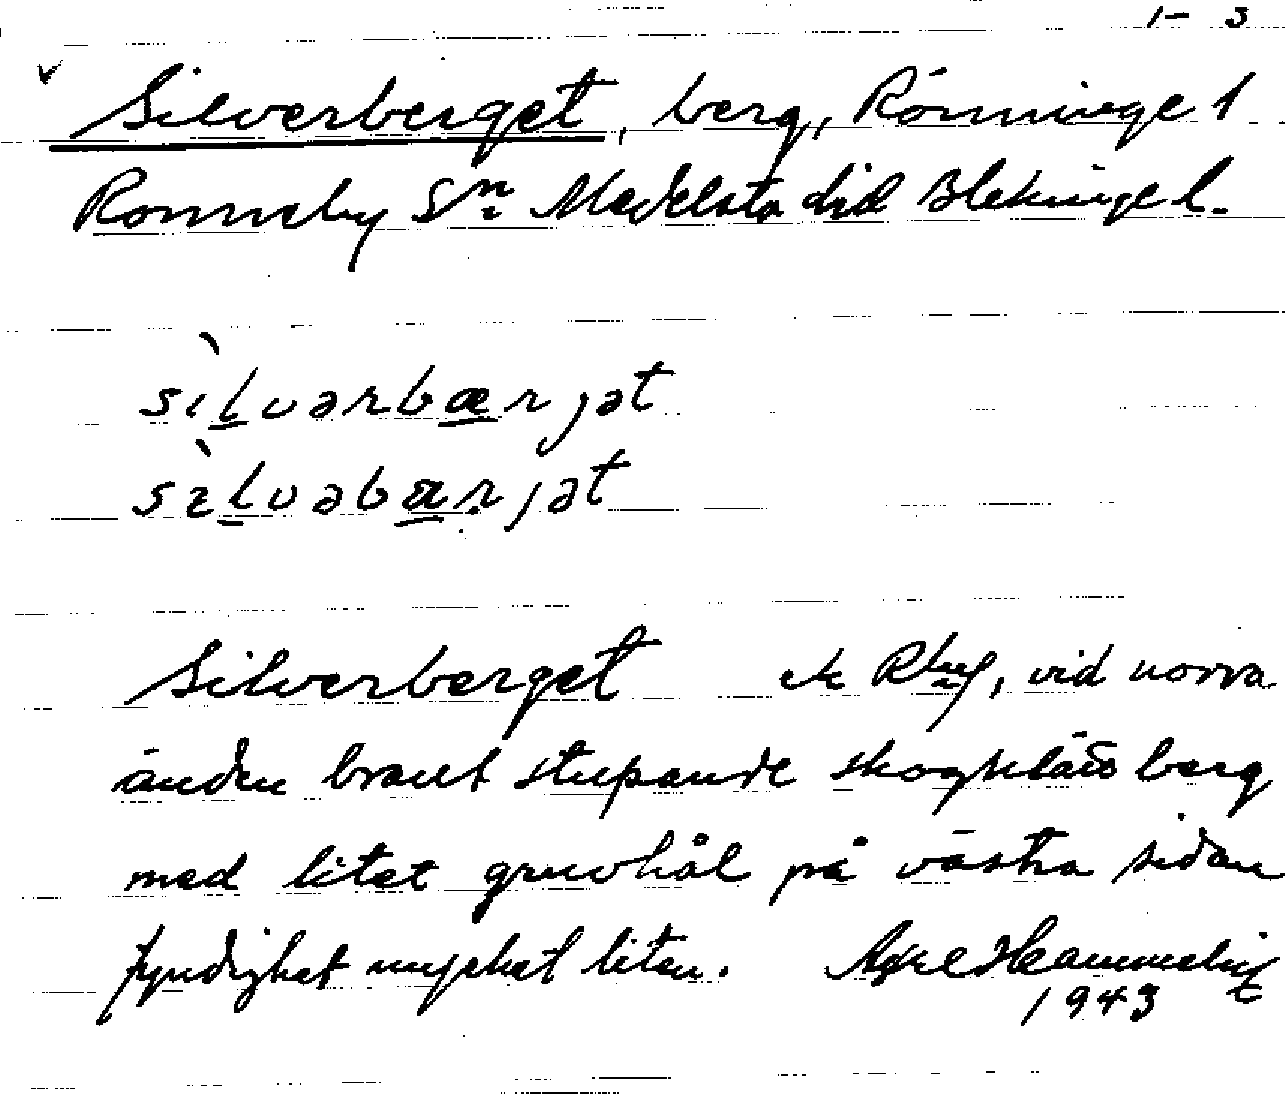 1- 3
v
Silverberget, berg, Rönninge 1
Ronneby Sn. Medelsta hd Blekinge l.
sìlvərbærjət
sìlvəbærjət
Silverberget ek Rby, vid norra
änden brant stupande skogklätt berg
med litet gruvhål på västra sidan
fyndighet mycket liten. Axel Hammelin
1943